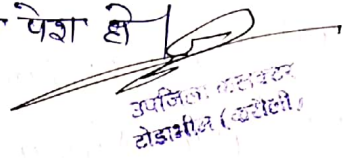 पेश हो
उपजिला कलक्टर
टोडाभीम (करौली)